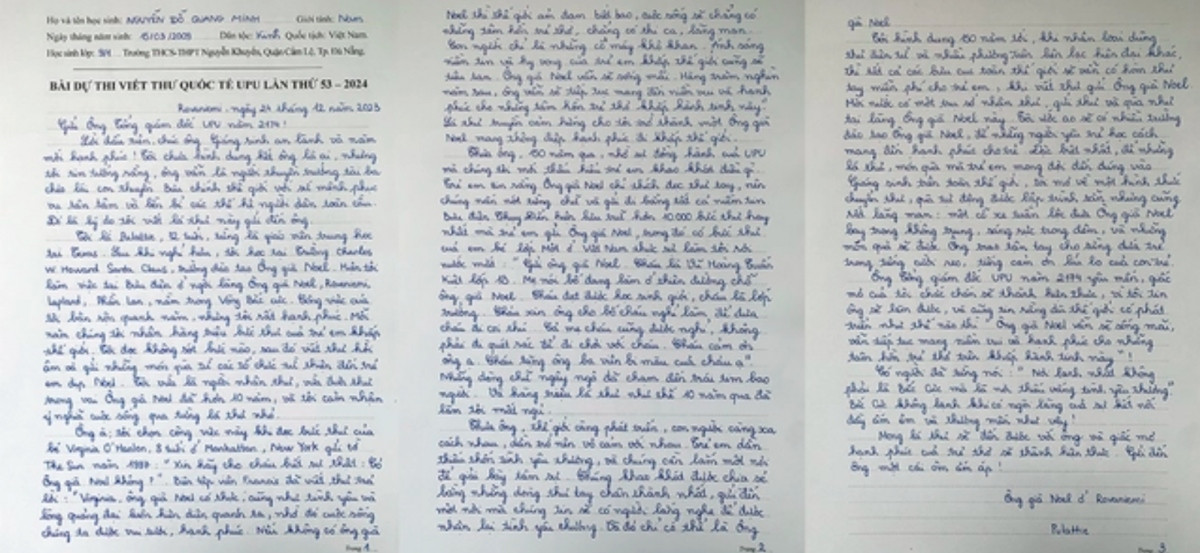 Họ và tên học sinh: NGUYỄN ĐỖ QUANG MINH Giới tính: Nam
Ngày tháng năm sinh: 15/03/2009 Dân tộc: Kinh Quốc tịch: Việt Nam.
Học sinh lớp: Trường THCS-THPT Nguyễn Khuyến, Quận Cẩm Lệ, Tp. Đà Nẵng.
BÀI DỰ THI VIẾT THƯ QUỐC TẾ UPU LẦN THỨ 53 – 2024
Rovaniemi, ngày 24 tháng 12 năm 2023
Gửi Ông Tổng giám đốc UPU năm 2174!
Lời đầu tiên, chúc ông Giáng sinh an lành và năm
mới hạnh phúc! Tôi chưa hình dung hết ông là ai, nhưng
tôi tin tưởng rằng, ông vẫn là người thuyền trưởng tài ba
chèo lái con thuyền Bưu chính thế giới với sứ mệnh phục
vụ tận tâm và bền bỉ các thế hệ người dân toàn cầu.
Đó là lý do tôi viết lá thư này gửi đến ông.
Tôi là 12 tuổi, từng là giáo viên trung học
tại Texas. Sau khi nghỉ hưu, tôi học tại Trường Charles
W. Howard Santa Claus, trường đào tạo Ông già Noel. Hiện tôi
làm việc tại Bưu điện ở ngôi làng Ông già Noel, Rovaniemi,
Lapland, Phần Lan, nằm trong Vòng Bắc cực. Công việc của
tôi bận rộn quanh năm, nhưng tôi rất hạnh phúc. Mỗi
năm chúng tôi nhận hàng triệu bức thư của trẻ em khắp
thế giới. Tôi đọc không sót bức nào, sau đó viết thư hồi
âm và gửi những món quà từ các tổ chức từ thiện đến trẻ
em dịp Noel. Tôi vừa là người nhận thư, vừa đưa thư
trong vai Ông già Noel đã hơn 10 năm, và tôi cảm nhận
ý nghĩa cuộc sống qua từng lá thư nhỏ.
Ông ạ, tôi chọn công việc này khi đọc bức thư của
bé Virginia O'Hanlon, 8 tuổi ở Manhattan, New York gửi tờ
The Sun năm 1897: "Xin hãy cho cháu biết sự thật: Có
Ông già Noel không?". Biên tập viên Francis đã viết thư trả
lời: "Virginia, ông già Noel có thực, cũng như tình yêu và
lòng quảng đại luôn hiện diện quanh ta, nhờ đó cuộc sống
chúng ta được vui tươi, hạnh phúc. Nếu không có ông già
Trang 1
Noel thì thế giới ảm đạm biết bao, cuộc sống sẽ chẳng có
những tâm hồn trẻ thơ, chẳng có thi ca, lãng mạn.
Con người chỉ là những cỗ máy khô khan. Ánh sáng
niềm tin và hy vọng của trẻ em khắp thế giới cũng sẽ
tiêu tan. Ông già Noel vẫn sống mãi. Hàng trăm nghìn
năm sau, ông vẫn sẽ tiếp tục mang đến niềm vui và hạnh
phúc cho những tâm hồn trẻ thơ khắp hành tinh này".
Lá thư truyền cảm hứng cho tôi trở thành một Ông già
Noel mang thông điệp hạnh phúc đi khắp thế giới.
Thưa ông, 150 năm qua, nhờ sự đồng hành của UPU
mà chúng tôi mới thấu hiểu trẻ em khao khát điều gì.
Trẻ em tin rằng Ông già Noel chỉ thích đọc thư tay, nên
chúng nắn nót từng chữ và gửi đi bằng tất cả niềm tin.
Bưu điện Thụy Điển hiện lưu trữ hơn 10.000 bức thư hay
nhất mà trẻ em gửi Ông già Noel, trong đó có bức thư
của em bé lớp Một ở Việt Nam thực sự làm tôi rơi
nước mắt: "Gửi ông già Noel. Cháu là Vũ Hoàng Tuấn
Kiệt lớp 1B. Mẹ nói bố đang làm ở thiên đường chỗ
ông già Noel. Cháu đạt được học sinh giỏi, cháu là lớp
trưởng. Cháu xin ông cho bố cháu nghỉ làm, để đưa
cháu đi coi thú. Có mẹ cháu cũng được nghỉ, không
phải đi quét rác để đi chơi với cháu. Cháu cảm ơn
ông ạ. Cháu tặng ông ba viên bi màu của cháu ạ".
Những dòng chữ ngây ngô đã chạm đến trái tim bao
người. Và hàng triệu lá thư như thế 10 năm qua đã
làm tôi mất ngủ.
Thưa Ông, thế giới càng phát triển, con người càng xa
cách nhau, dần trở nên vô cảm với nhau. Trẻ em dần
thiếu thốn tình yêu thương, và chúng cần lắm một nơi
để giãi bày tâm sự. Chúng khao khát được chia sẻ
bằng những dòng thư tay chân thành nhất, gửi đến
một nơi mà chúng tin sẽ có người lắng nghe để được
nhận lại tình yêu thương. Và đó chỉ có thể là Ông
Trang 2
già Noel
Tôi hình dung 150 năm tới, khi nhân loại dùng
thư điện tử và nhiều phương tiện liên lạc hiện đại khác,
thì tất cả các bưu cục toàn thế giới sẽ vẫn có hòm thư
tay miễn phí cho trẻ em, khi viết thư gửi Ông già Noel
Mỗi nước có một trụ sở nhận thư, gửi thư và quà như
tại làng Ông già Noel này. Tôi ước ao sẽ có nhiều trường
đào tạo Ông già Noel, để những người yêu trẻ học cách
mang đến hạnh phúc cho trẻ. Đặc biệt nhất, để những
lá thư, món quà mà trẻ em mong đợi đến đúng vào
Giáng sinh trên toàn thế giới, tôi mơ về một hình thức
chuyển thư, quà tự động được lập trình sẵn nhưng cũng
rất lãng mạn: một cỗ xe tuần lộc đưa Ông già Noel
bay trong không trung, sáng rực trong đêm, và những
món quà sẽ được Ông trao tận tay cho từng đứa trẻ
trong tiếng cười reo, tiếng cảm ơn líu lo của con trẻ.
Ông Tổng giám đốc UPU năm 2174 yêu mến, giấc
mơ của tôi chắc chắn sẽ thành hiện thực, vì tôi tin
ông sẽ làm được, và cũng tin rằng dù thế giới có phát
triển như thế nào thì "Ông già Noel vẫn sẽ sống mãi,
vẫn tiếp tục mang niềm vui và hạnh phúc cho những
tâm hồn trẻ thơ trên khắp hành tinh này"!
Có người đã từng nói: "Nơi lạnh nhất không
phải là Bắc Cực mà là nơi thiếu vắng tình yêu thương".
Bắc Cực không lạnh khi có ngôi làng của sự kết nối
đầy ấm êm và thương mến như vậy!
Mong lá thư sẽ đến được với ông và giấc mơ
hạnh phúc của trẻ thơ sẽ thành hiện thực. Gửi đến
Ông một cái ôm ấm áp!
Ông già Noel ở Rovaniemi
Trang 3